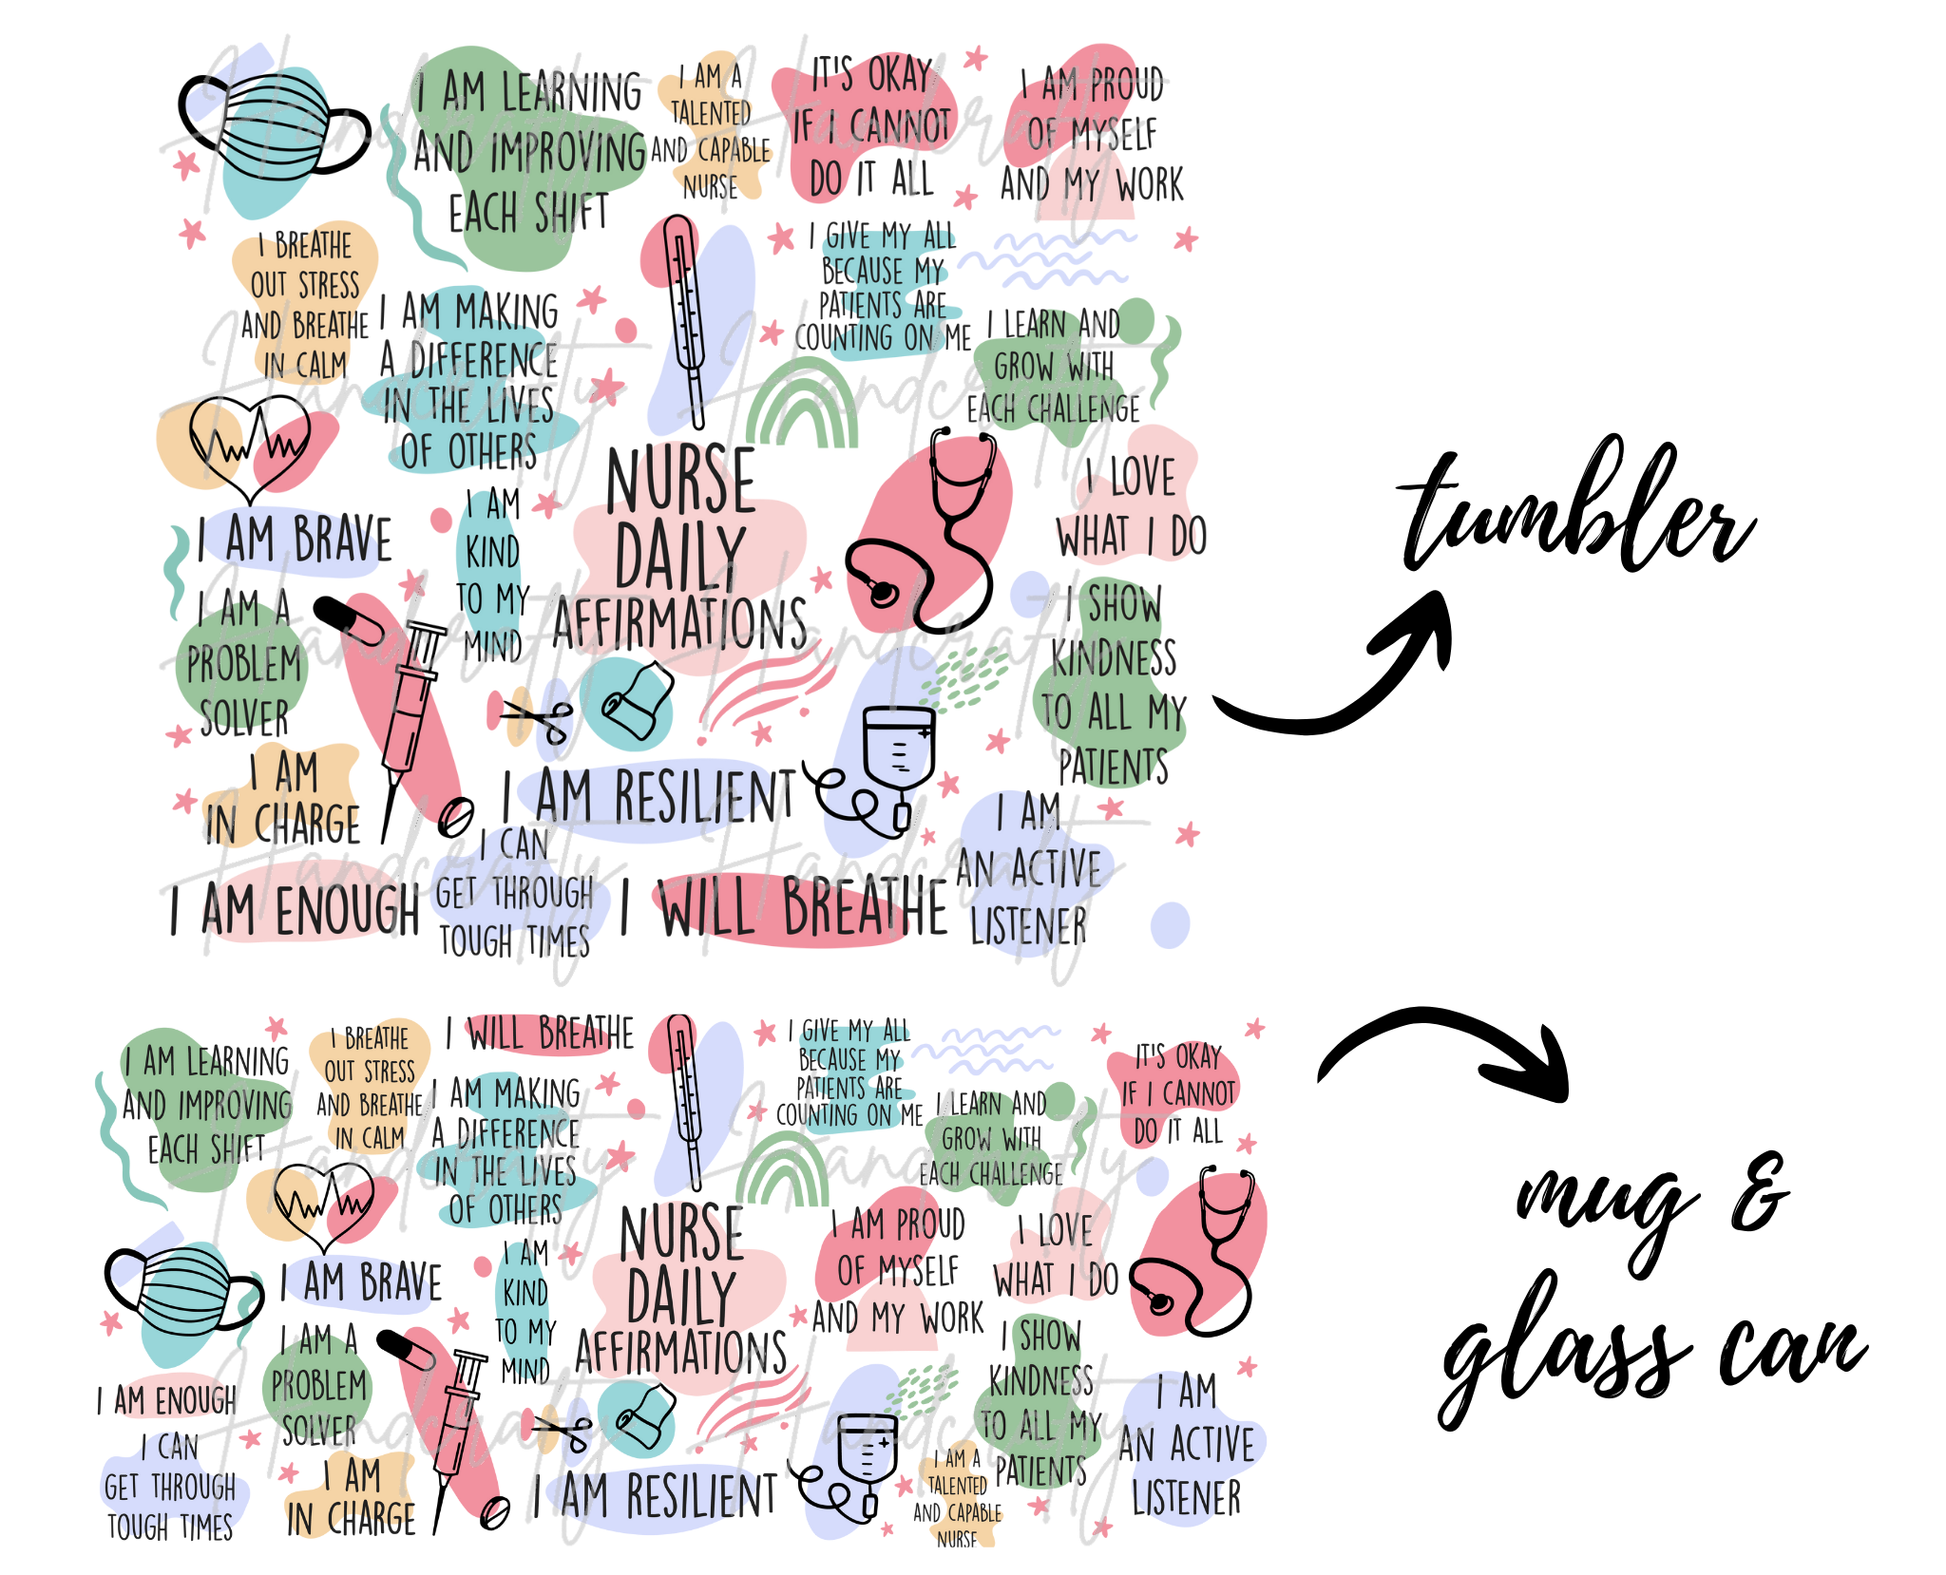 I AM LEARNING
AND IMPROVING
EACH SHIFT
I AM A
TALENTED
AND CAPABLE
NURSE
IT'S OKAY
IF I CANNOT
DO IT ALL
I AM PROUD
OF MYSELF
AND MY WORK
I BREATHE
OUT STRESS
AND BREATHE
IN CALM
I AM MAKING
A DIFFERENCE
IN THE LIVES
OF OTHERS
I GIVE MY ALL
BECAUSE MY
PATIENTS ARE
COUNTING ON ME
I LEARN AND
GROW WITH
EACH CHALLENGE
I AM BRAVE
I AM
KIND
TO MY
MIND
NURSE
DAILY
AFFIRMATIONS
I LOVE
WHAT I DO
I AM A
PROBLEM
SOLVER
I SHOW
KINDNESS
TO ALL MY
PATIENTS
I AM
IN CHARGE
I AM RESILIENT
I AM ENOUGH
I CAN
GET THROUGH
TOUGH TIMES
I WILL BREATHE
I AM
AN ACTIVE
LISTENER
tumbler
I AM LEARNING
AND IMPROVING
EACH SHIFT
I BREATHE
OUT STRESS
AND BREATHE
IN CALM
I WILL BREATHE
I AM MAKING
A DIFFERENCE
IN THE LIVES
OF OTHERS
I GIVE MY ALL
BECAUSE MY
PATIENTS ARE
COUNTING ON ME
I LEARN AND
GROW WITH
EACH CHALLENGE
IT'S OKAY
IF I CANNOT
DO IT ALL
I AM BRAVE
I AM
KIND
TO MY
MIND
NURSE
DAILY
AFFIRMATIONS
I AM PROUD
OF MYSELF
AND MY WORK
I LOVE
WHAT I DO
I AM ENOUGH
I AM A
PROBLEM
SOLVER
I SHOW
KINDNESS
TO ALL MY
PATIENTS
I CAN
GET THROUGH
TOUGH TIMES
I AM
IN CHARGE
I AM RESILIENT
I AM A
TALENTED
AND CAPABLE
NURSE
I AM
AN ACTIVE
LISTENER
mug &
glass can
Handcrafty
Handcrafty
Handcrafty
Handcrafty
Handcrafty
Handcrafty
Handcrafty
Handcrafty
Handcrafty
Handcrafty
Handcrafty
Handcrafty